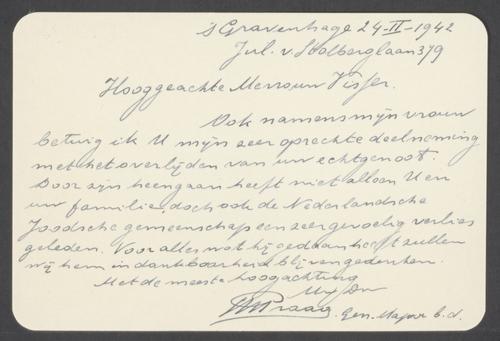 's Gravenhage 24-II-1942
Jul. v. Stolberglaan 379
Hooggeachte Mevrouw Visser.
Ook namens mijn vrouw
betuig ik U mijn zeer oprechte deelneming
met het overlijden van uw echtgenoot.
Door zijn heengaan heeft niet alleen U en
uw familie, doch ook de Nederlandsche
Joodsche gemeenschap een zeer gevoelig verlies
geleden. Voor alles wat hij gedaan heeft zullen
wij hem in dankbaarheid blijven gedenken.
Met de meeste hoogachting
Uw Dw
Praag. Gen. Majoor b.d.